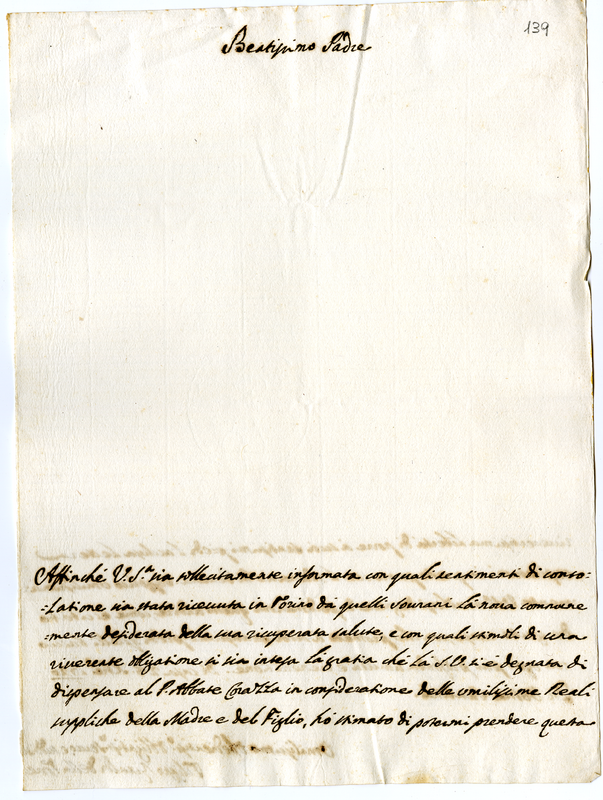 139
Beatissimo Padre
Affinché V. S.ta sia sollecitamente informata con quali sentimenti di conso:
:latione sia stata riceuuta in Torino da quelli Sourani la noua commune
:mente desiderata della sua ricuperata salute, e con quali stimoli di una
riuerente obligatione si sia intesa la gratia ché la S. V. si é degnata di
dispensare al P. Abbate in consideratione delle umilissime Reali
suppliche della Madre e del Figlio, hó stimato di potermi prendere questa